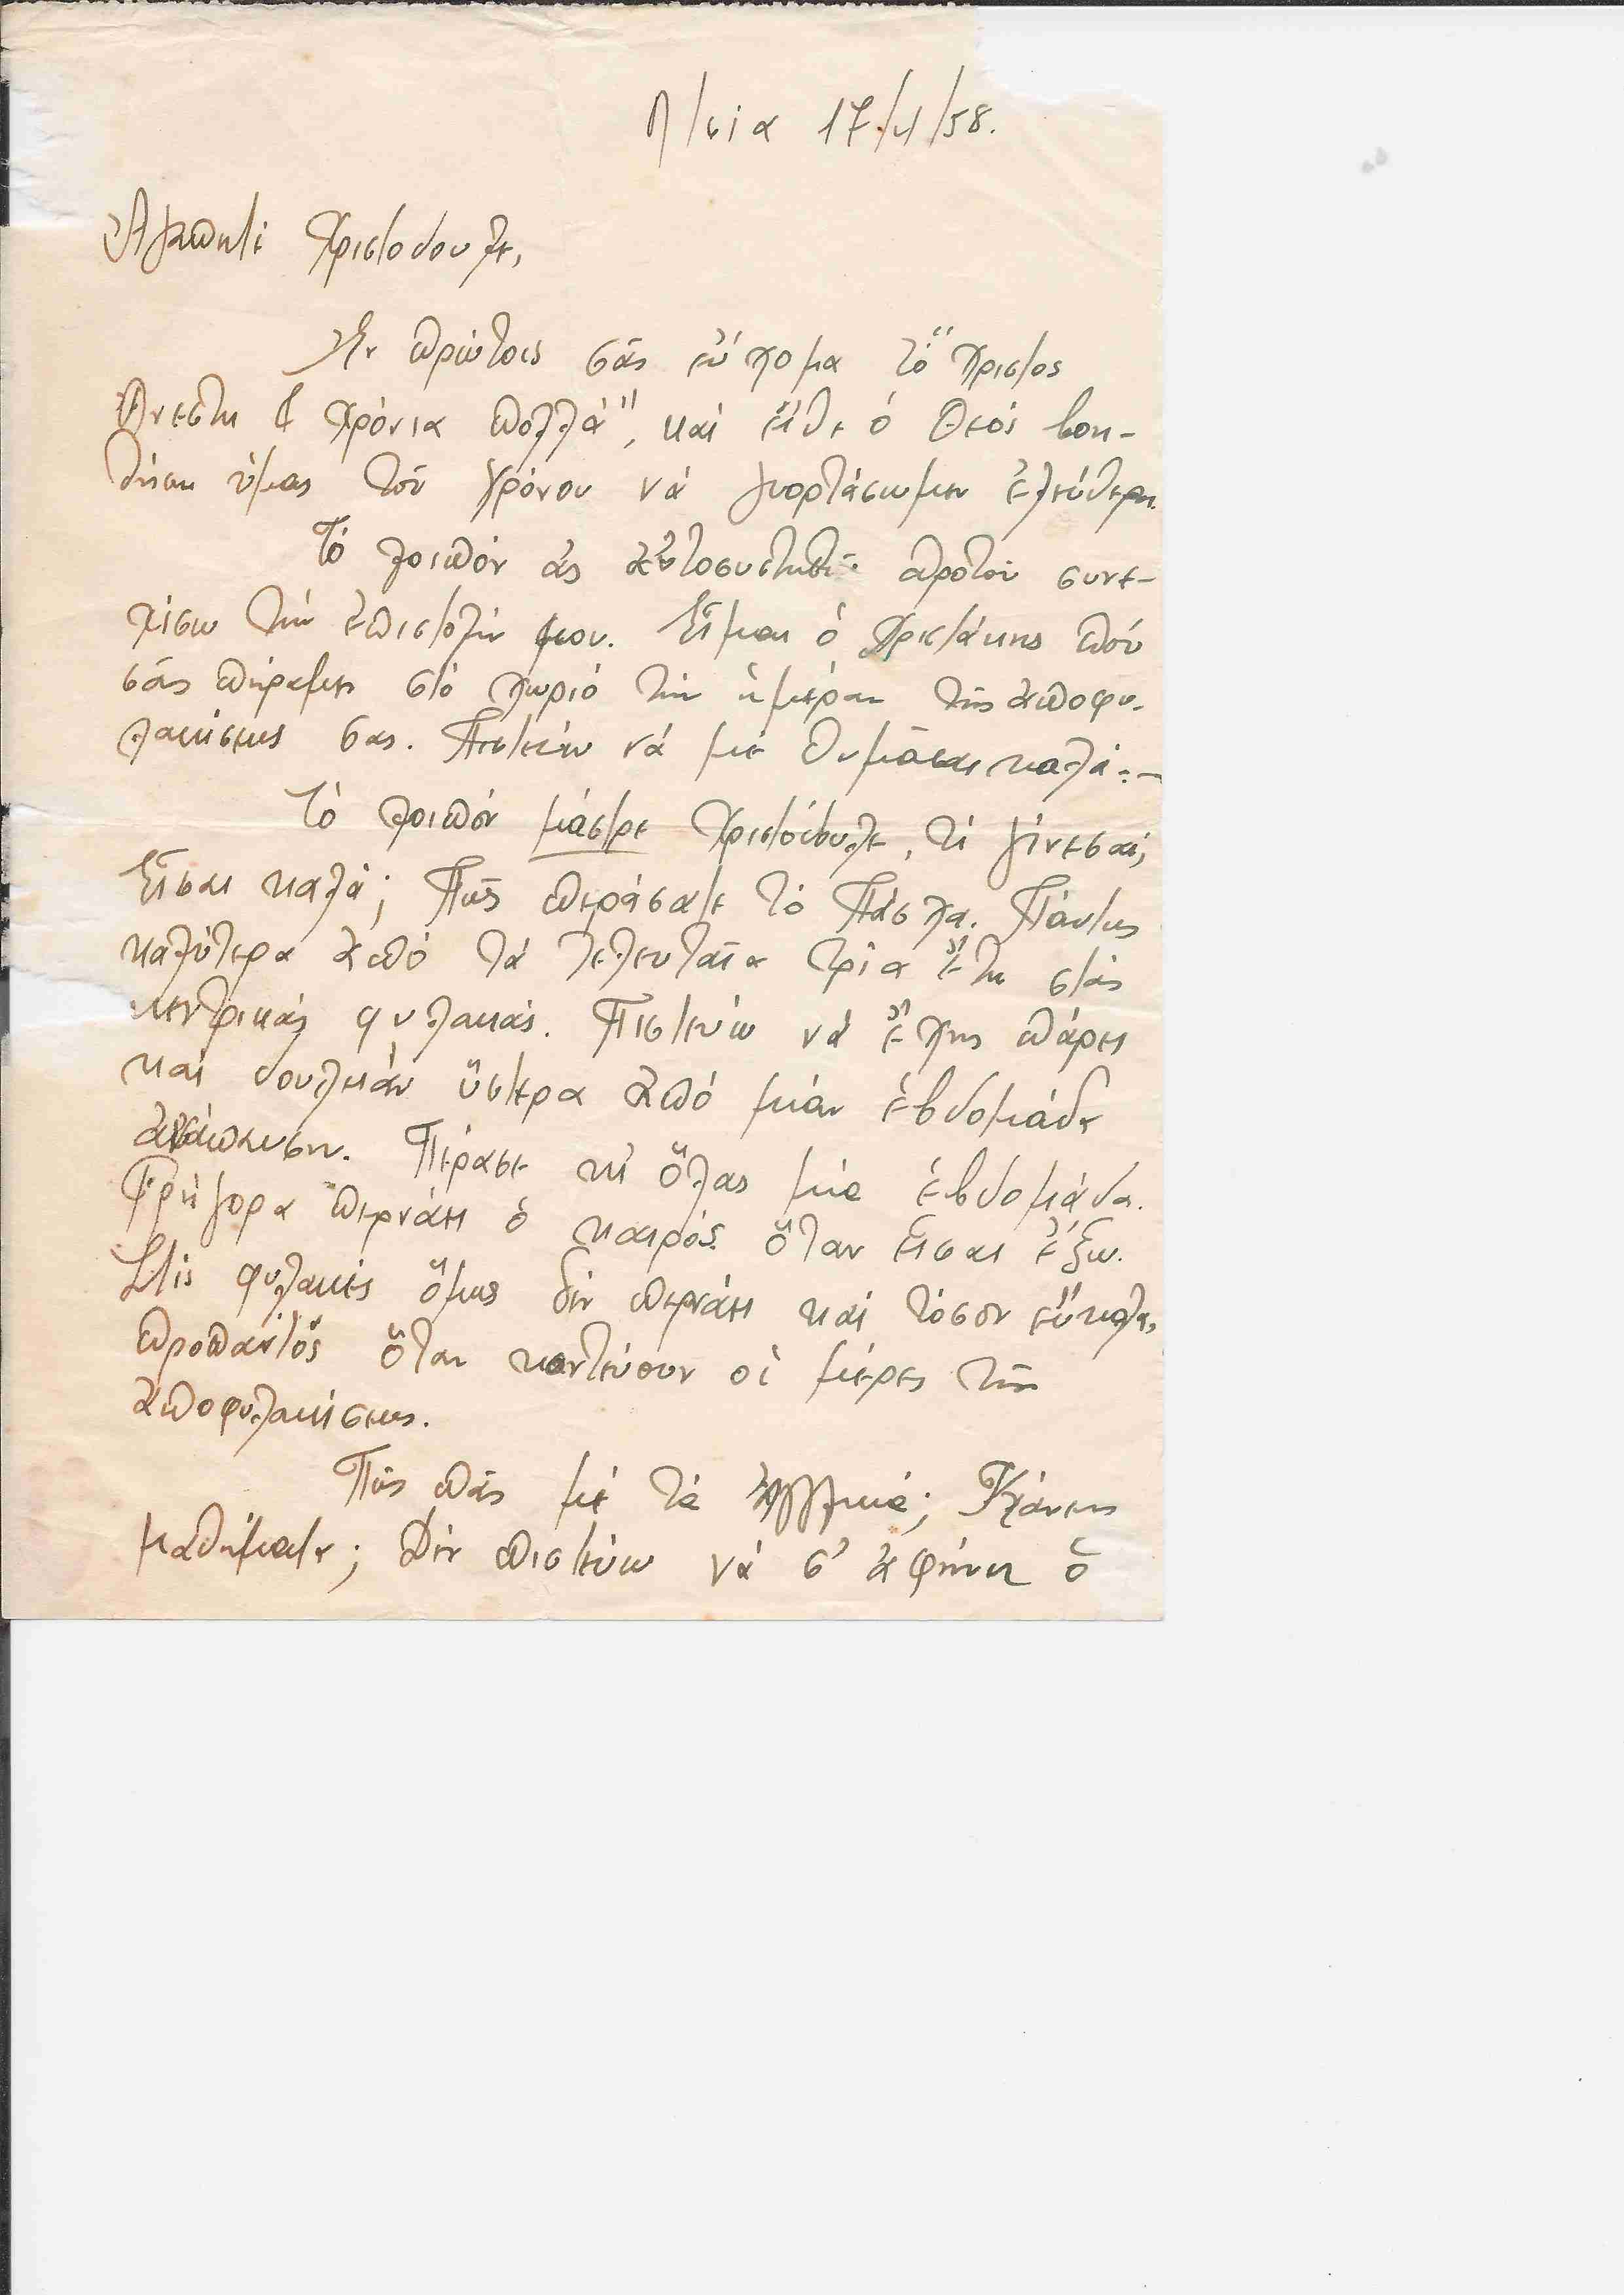 Λ/σία 17/4/58.
Ἀγαπητέ Χριστόδουλε,
Ἐν πρώτοις σᾶς εὔχομα τό "Χριστος
Ανέστη & Χρόνια πολλά", καί εἴθε ὁ Θεός βοη-
θήση ὑμας τοῦ χρόνου νά γιορτάσωμεν ἐλεύθεροι.
Τό λοιπόν ἄς αὐτοσυστηθῶ προτοῦ συνε-
χίσω τήν ἐπιστολήν μου. Εἶμαι ὁ Χριστάκης πού
σᾶς πήραμεν στό χωριό τήν ἡμέραν τῆς ἀποφυ-
λακίσεως σας. Πιστεύω νά με θυμᾶσαι καλά:-
Τό λοιπόν μάστρε Χριστόδουλε, τί γίνεσαι;
Εἶσαι καλά; Πῶς περάσατε τό Πάσχα. Πάντως
καλύτερα ἀπό τά τελευταῖα τρία ἔτη στάς
κεντρικάς φυλακάς. Πιστεύω νά ἔχης πάρει
καί δουλειάν ὕστερα ἀπό μιάν ἑβδομάδα
ἀνάπαυση. Πέρασε κι' ὅλας μία ἑβδομάδα.
Γρήγορα περνάει ὁ καιρός ὅταν εἶσαι ἔξω.
Στίς φυλακές ὅμως δέν περνάει καί τόσον εὔκολα,
προπαντός ὅταν κοντεύουν οἱ μέρες τῆς
ἀποφυλακίσεως.
Πῶς πᾶς μέ τά Ἀγγλικά; Κάνεις
μαθήματα; Δέν πιστεύω νά σ' ἀφήνει ὁ